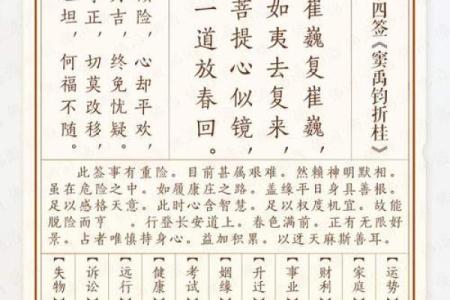 四签《窦禹钧折桂》
崔巍复崔巍，
如夷去复来，
菩提心似镜，
一道放春回。
险，心却平欢，
吉，终免忧疑。
正，切莫改移，
坦，何福不随。
此签事有重险。目前甚属艰难。然赖神明默相。
虽在危险之中。如履康庄之路。盖缘平日身具善根。
足以感格天意。此时心含智慧。足以权度机宜。故能
脱险而亨 。行登长安道上。春色满前。正有无限好
景。占者唯慎持身心。益加积累。以迓天麻斯善耳。
【运势】
【家庭】
【财利】
【事业】
【升迁】
【姻缘】
【考试】
【健康】
【远行】
【诉讼】
【失物】